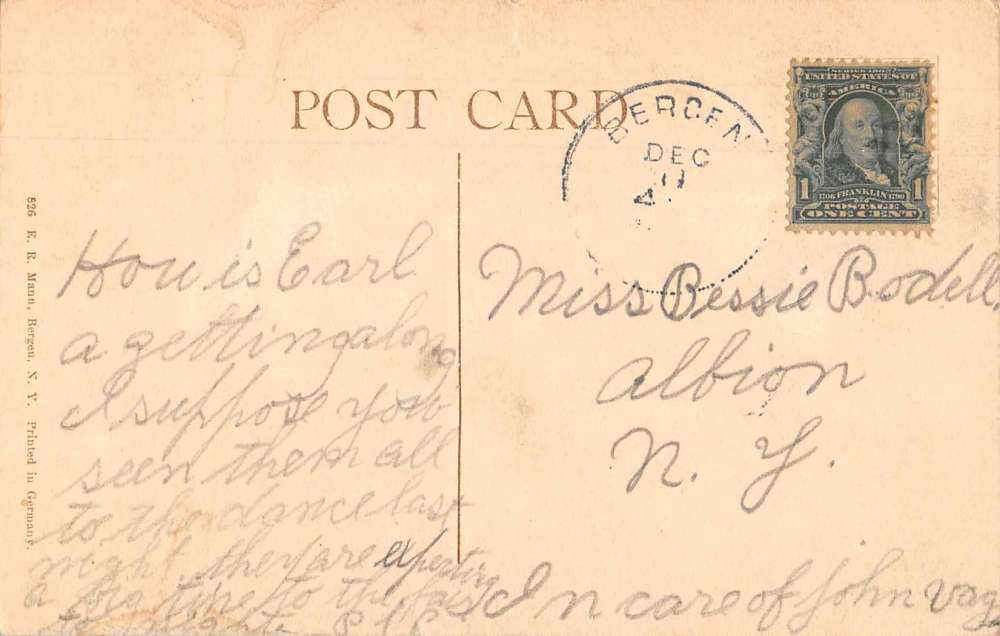 POST CARD
BERGEN
DEC
SERIES 1902
UNITED STATES OF
AMERICA
1 1706 FRANKLIN 1790 1
POSTAGE
ONE CENT
526 E. R. Mann, Bergen, N. Y. Printed in Germany.
How is Earl
a getting along
I suppose you
seen them all
to the dance last
night. they are expecting
a big time to the fair
to night
Miss Bessie Bodell.
Albion
N. Y.
In care of John